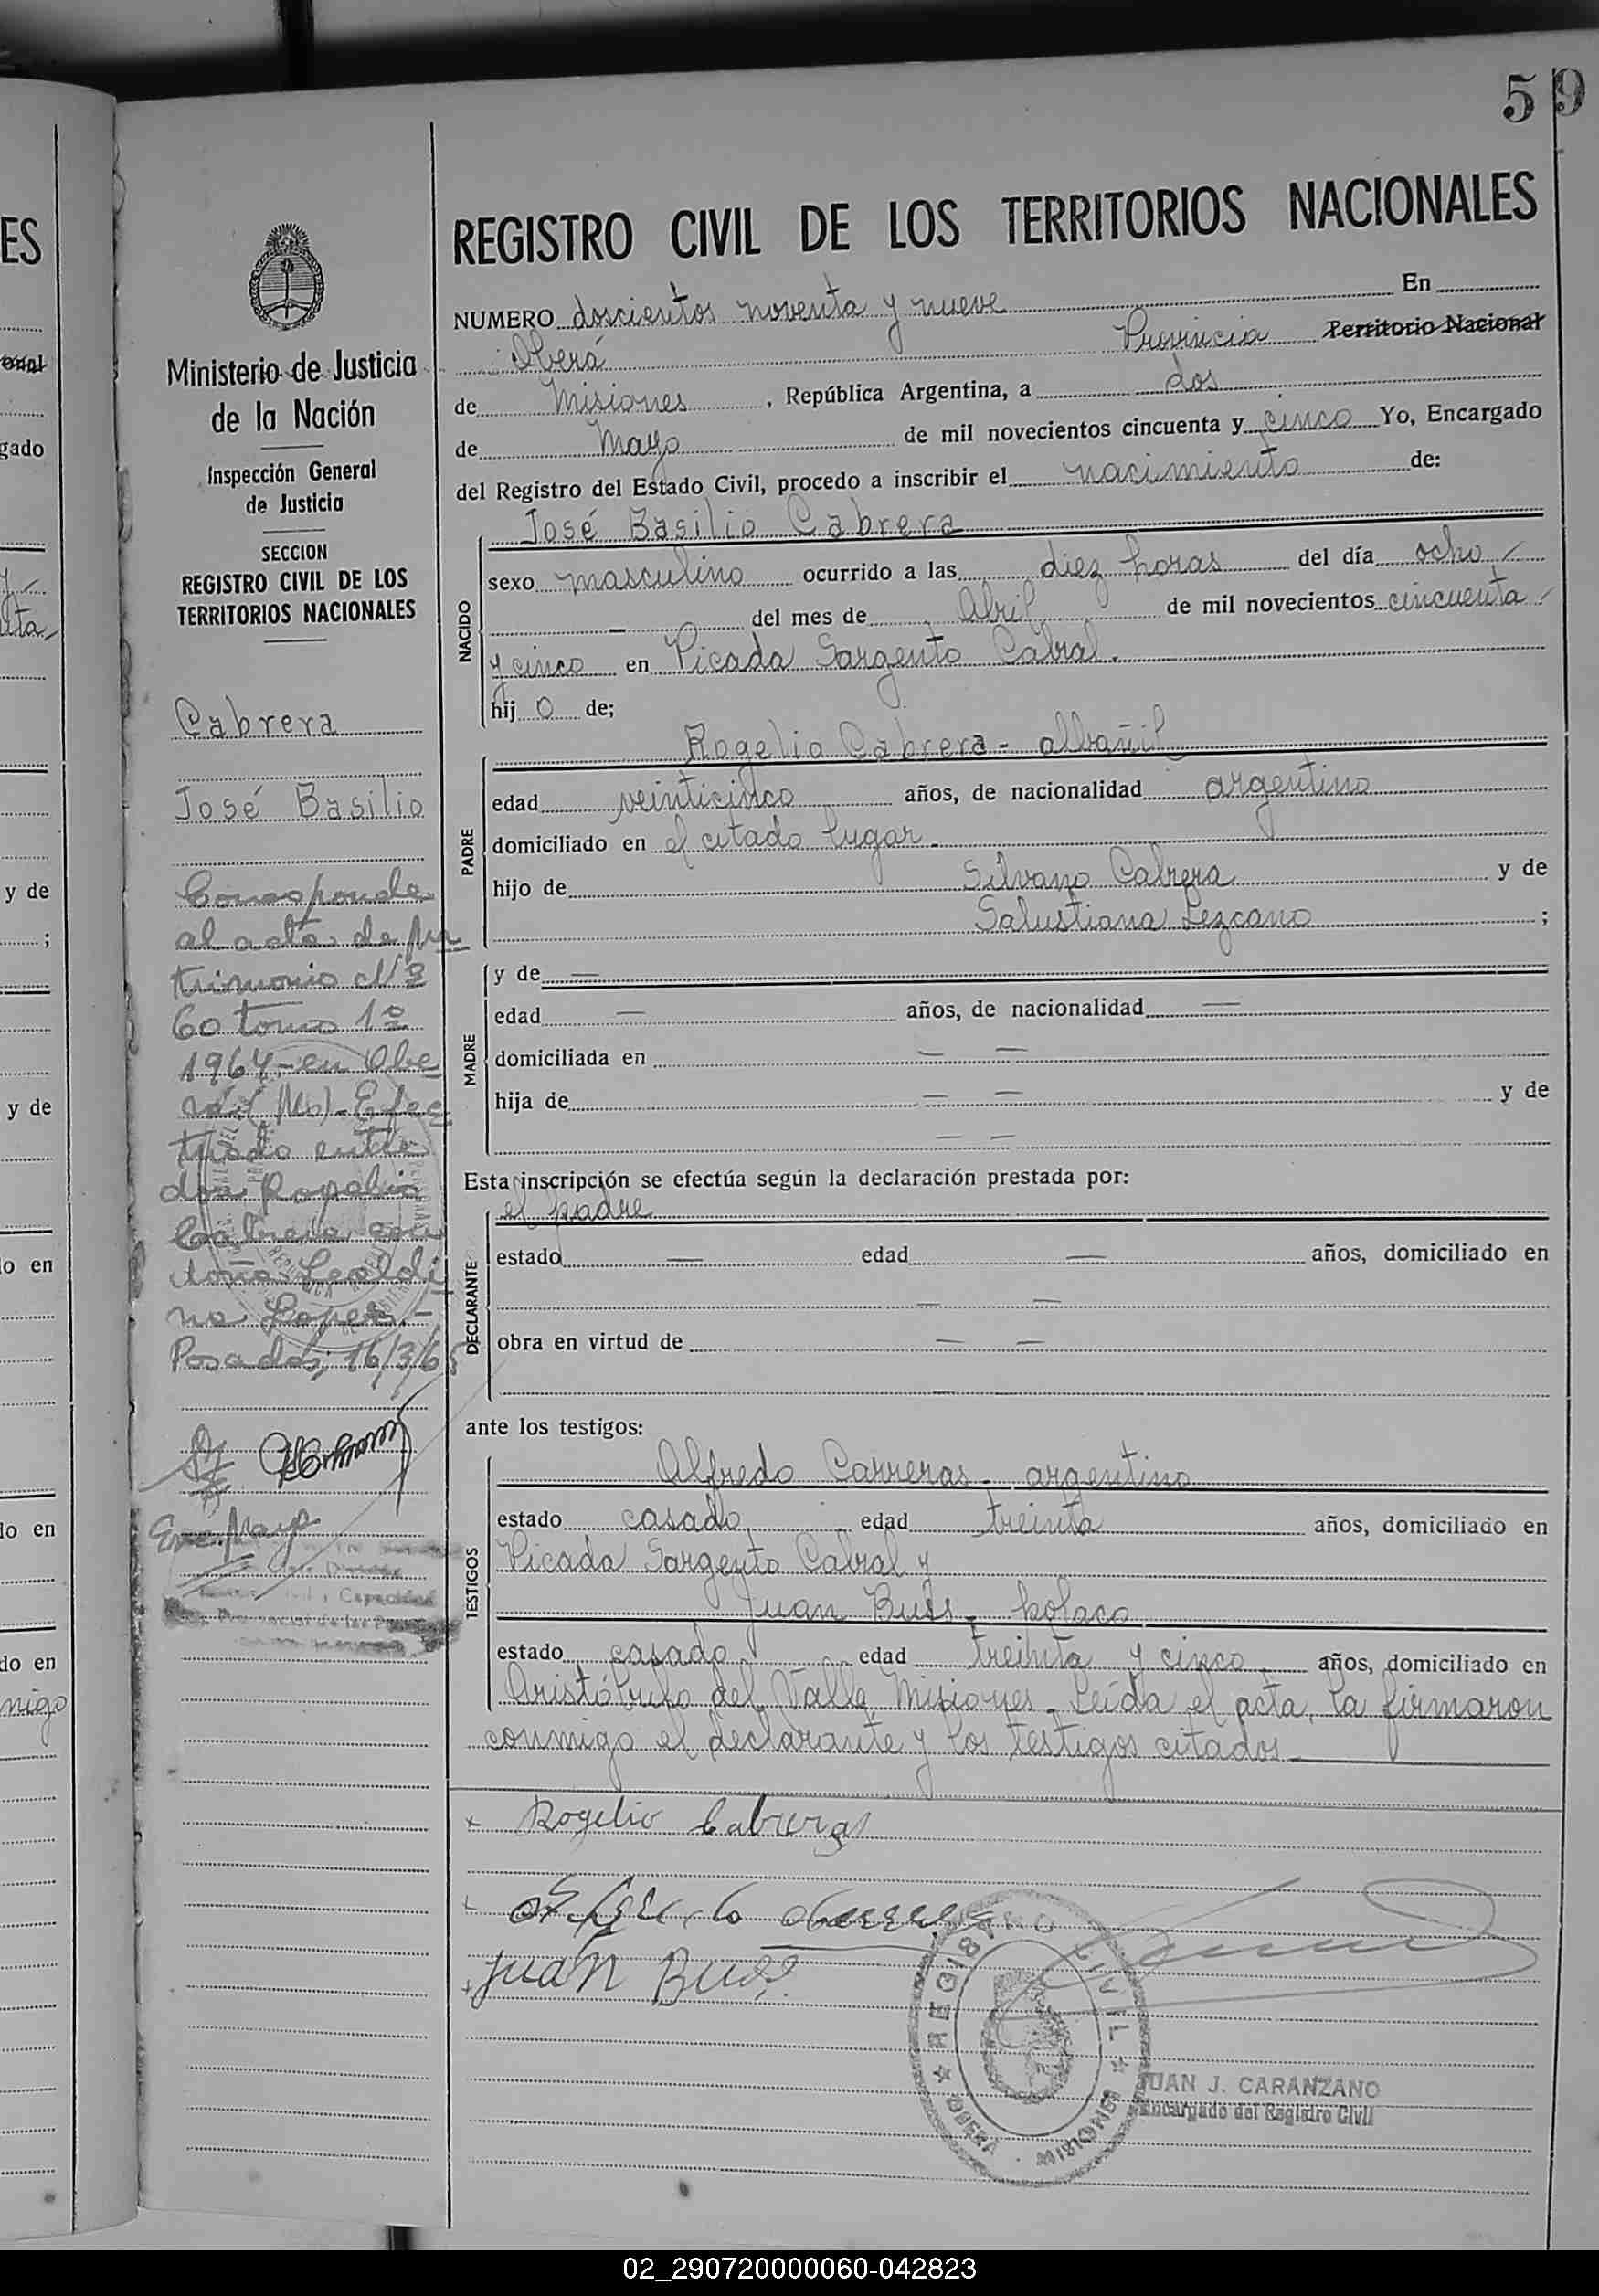 59
REGISTRO CIVIL DE LOS TERRITORIOS NACIONALES
NUMERO doscientos noventa y nueve En
Oberá Provincia Territorio Nacional
de Misiones, República Argentina, a dos
de Mayo de mil novecientos cincuenta y cinco Yo, Encargado
del Registro del Estado Civil, procedo a inscribir el nacimiento de:
José Basilio Cabrera
NACIDO
sexo masculino ocurrido a las diez horas del día ocho
del mes de Abril de mil novecientos cincuenta
y cinco en Picada Sargento Cabral.
hijo de;
Rogelio Cabrera - albañil
PADRE
edad veinticinco años, de nacionalidad argentino
domiciliado en el citado lugar.
hijo de Silvano Cabrera y de
Salustiana Lezcano ;
MADRE
y de —
edad — años, de nacionalidad —
domiciliada en — —
hija de — — y de
— —
Esta inscripción se efectúa según la declaración prestada por:
el padre
DECLARANTE
estado — edad — años, domiciliado en
— —
obra en virtud de — —
—
ante los testigos:
Alfredo Carreras - argentino
TESTIGOS
estado casado edad treinta años, domiciliado en
Picada Sargento Cabral y
Juan Buss - polaco
estado casado edad treinta y cinco años, domiciliado en
Aristóbulo del Valle, Misiones. Leída el acta, la firmaron
conmigo el declarante y los testigos citados.
x Rogelio Cabrera
Juan Buss
REGISTRO CIVIL
OBERA MISIONES
JUAN J. CARANZANO
Encargado del Registro Civil
Ministerio de Justicia
de la Nación
Inspección General
de Justicia
SECCION
REGISTRO CIVIL DE LOS
TERRITORIOS NACIONALES
Cabrera
José Basilio
Corresponde
al acta de ma
trimonio Nº
60 tomo 1º
1964 - en Obe
rá (Ms) - Efec
tuado entre
don Rogelio
Cabrera con
doña Leoldi
na Lopez. -
Posadas, 16/3/65
ES
onal
gado
y de
;
y de
lo en
lo en
do en
migo
02_290720000060-042823